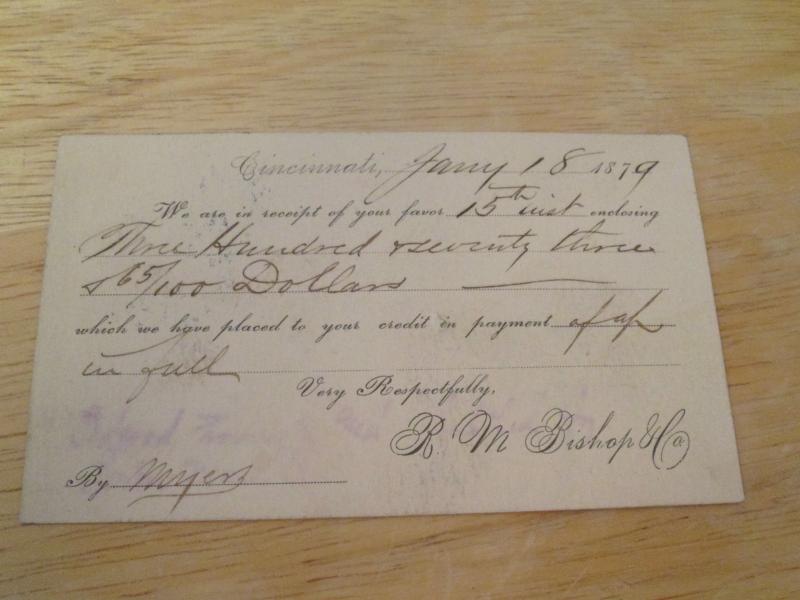 Cincinnati, Jany 18 1879
We are in receipt of your favor 15th inst enclosing
Three Hundred & seventy three
& 65/100 Dollars
which we have placed to your credit in payment of a/c
in full
Very Respectfully,
R. M Bishop & Co
By Myers